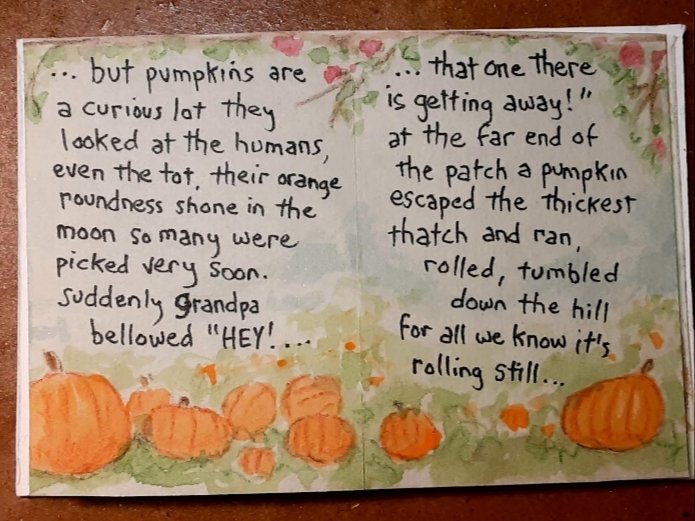 ... but pumpkins are
a curious lot they
looked at the humans,
even the tot, their orange
roundness shone in the
moon so many were
picked very soon.
Suddenly grandpa
bellowed "HEY!...
... that one there
is getting away!"
at the far end of
the patch a pumpkin
escaped the thickest
thatch and ran,
rolled, tumbled
down the hill
for all we know it's
rolling still...